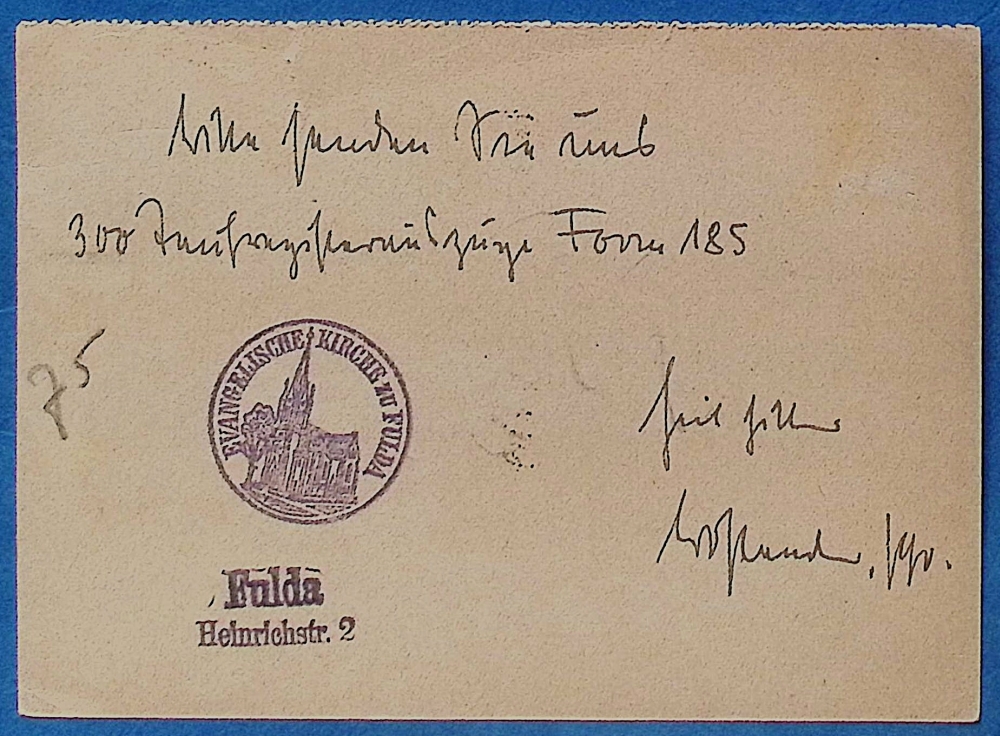 Bitte senden Sie uns
300 Taufregisterauszüge Form 185
75
EVANGELISCHE KIRCHE ZU FULDA
Heil Hitler
Fulda
Heinrichstr. 2